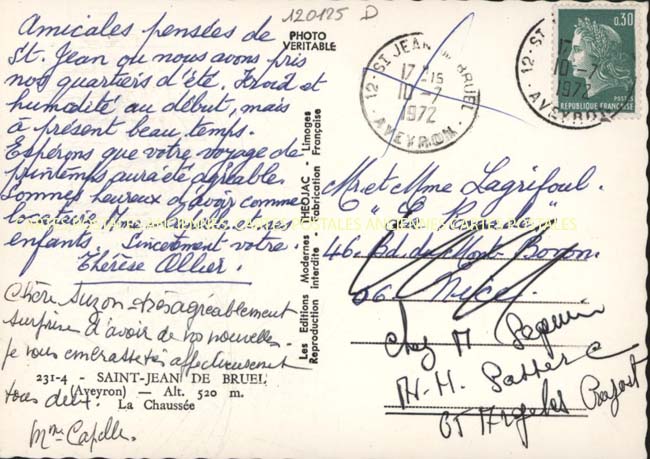 120125 D
Amicales pensées de
St. Jean où nous avons pris
nos quartiers d'été. Froid et
humidité au début, mais
à présent beau temps.
Espérons que votre voyage de
printemps aura été agréable.
Sommes heureux d'avoir comme
locataire Mme et ses
enfants. Sincèrement votre
Thérèse Allier.
Chère Suzon - très agréablement
surprise d'avoir de vos nouvelles.
je vous embrasse très affectueusement
tous deux.
Mme Capelle.
231-4 - SAINT-JEAN DE BRUEL
(Aveyron) — Alt. 520 m.
La Chaussée
PHOTO
VERITABLE
Les Editions Modernes THEOJAC - Limoges
Reproduction interdite Fabrication Française
12 - ST JEAN DE BRUEL
17 H 15
10-7
1972
AVEYRON
12 - ST
17
10-7
1972
AVEYRON
0,30
POSTES
REPUBLIQUE FRANÇAISE
Mr. et Mme Lagrifoul.
"Le "
46. Bd. du Mont-Boron.
06. Nice.
chez M Pequin
65 Argelès Gazost
CARTES POSTALES ANCIENNES CARTES POSTALES ANCIENNES CARTES POSTALES